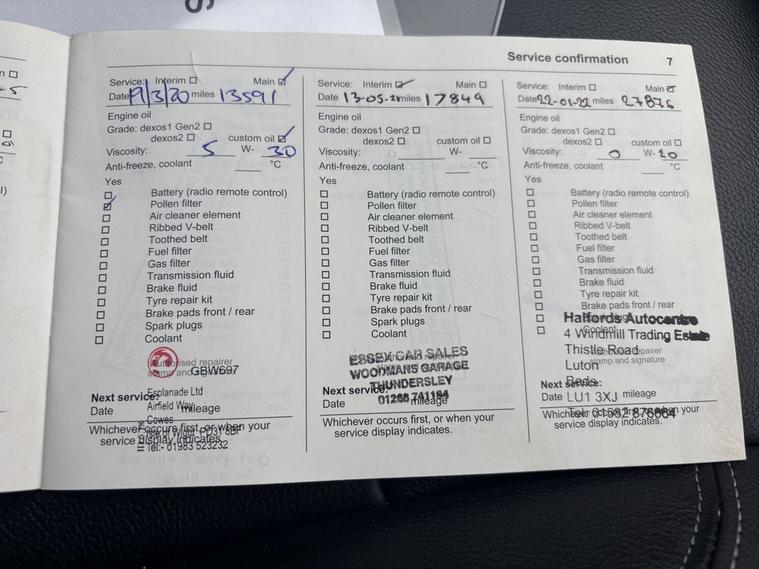 Service confirmation 7
Service: Interim ☐ Main ☑
Date 19/3/20 miles 13591
Engine oil
Grade: dexos1 Gen2 ☐
dexos2 ☐ custom oil ☑
Viscosity: 5 W- 30
Anti-freeze, coolant °C
Yes
☐ Battery (radio remote control)
☑ Pollen filter
☐ Air cleaner element
☐ Ribbed V-belt
☐ Toothed belt
☐ Fuel filter
☐ Gas filter
☐ Transmission fluid
☐ Brake fluid
☐ Tyre repair kit
☐ Brake pads front / rear
☐ Spark plugs
☐ Coolant
GBW697
Esplanade Ltd
Next service:
Airfield Way
Date mileage
Cowes
Whichever occurs first, or when your
service display indicates.
Tel:- 01983 523232
Service: Interim ☑ Main ☐
Date 13-05-21 miles 17849
Engine oil
Grade: dexos1 Gen2 ☐
dexos2 ☐ custom oil ☐
Viscosity: W-
Anti-freeze, coolant °C
Yes
☐ Battery (radio remote control)
☐ Pollen filter
☐ Air cleaner element
☐ Ribbed V-belt
☐ Toothed belt
☐ Fuel filter
☐ Gas filter
☐ Transmission fluid
☐ Brake fluid
☐ Tyre repair kit
☐ Brake pads front / rear
☐ Spark plugs
☐ Coolant
ESSEX CAR SALES
WOODMANS GARAGE
THUNDERSLEY
Next service:
01268 741184
Date mileage
Whichever occurs first, or when your
service display indicates.
Service: Interim ☐ Main ☑
Date 22-01-22 miles 27876
Engine oil
Grade: dexos1 Gen2 ☐
dexos2 ☐ custom oil ☐
Viscosity: 0 W- 20
Anti-freeze, coolant °C
Yes
☐ Battery (radio remote control)
☐ Pollen filter
☐ Air cleaner element
☐ Ribbed V-belt
☐ Toothed belt
☐ Fuel filter
☐ Gas filter
☐ Transmission fluid
☐ Brake fluid
☐ Tyre repair kit
☐ Brake pads front / rear
Halfords Autocentre
4 Windmill Trading Estate
Thistle Road
stamp and signature
Luton
Beds
Next service:
Date LU1 3XJ mileage
Tel: 01582 876064
Whichever occurs first, or when your
service display indicates.